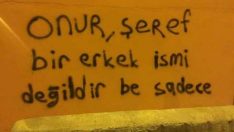 ONUR, şeref
bir erkek ismi
değildir be sadece